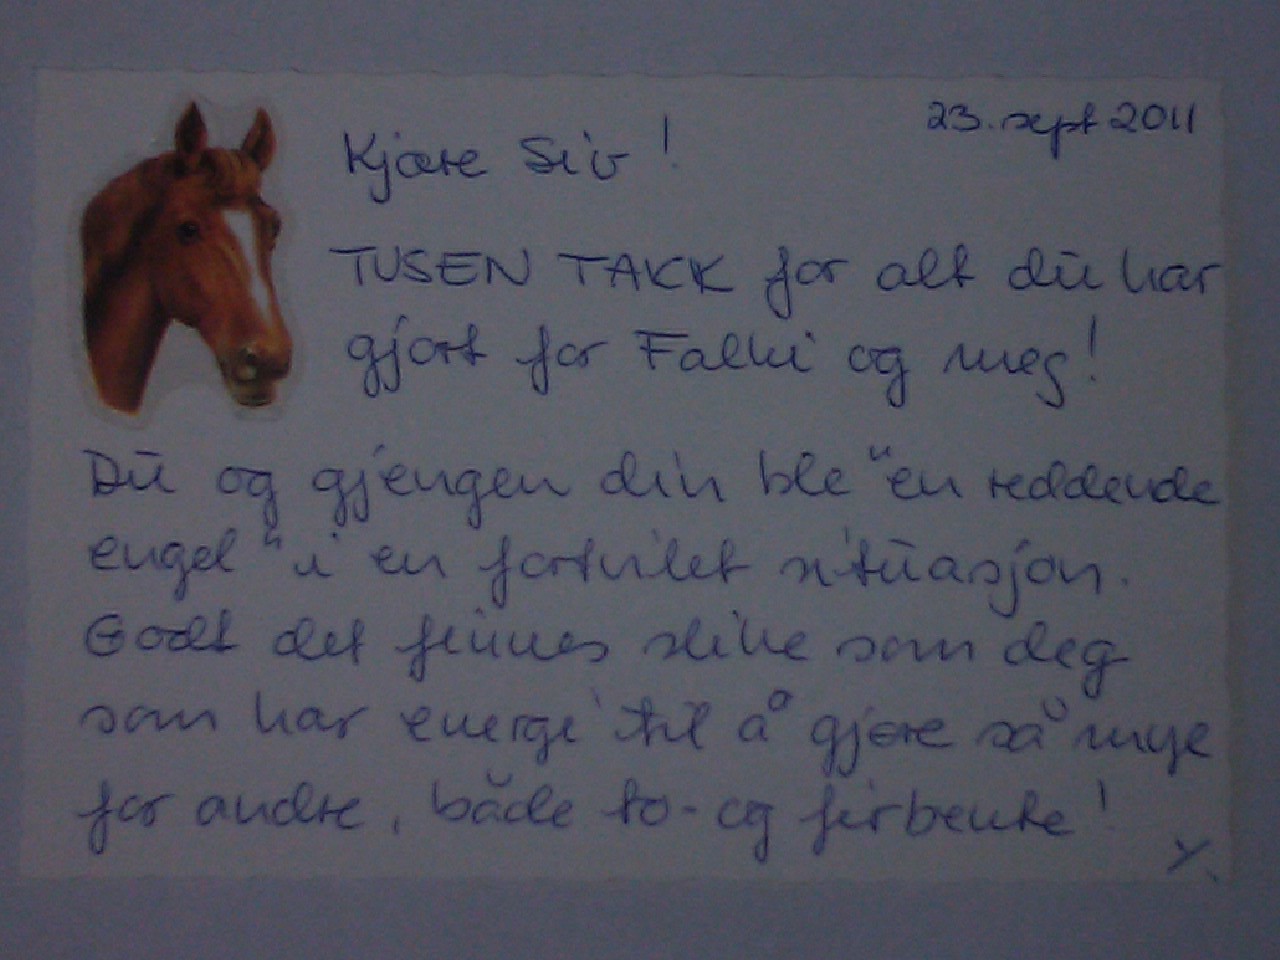 23. sept 2011
Kjære Siv!
TUSEN TAKK for alt du har
gjort for Falki og meg!
Du og gjengen din ble "en reddende
engel" i en fortvilet situasjon.
Godt det finnes slike som deg
som har energi til å gjøre så mye
for andre, både to- og firbente!